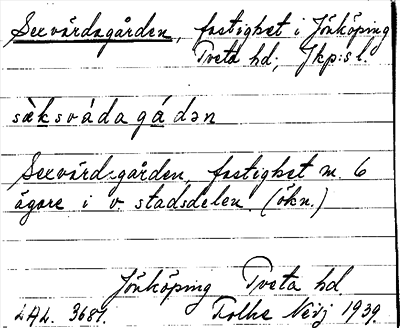 Sexvärdsgården, fastighet i Jönköping
Tveta hd; Jkp:s l.
sàksvádagádən
Sexvärdsgården, fastighet m. 6
ägare i v. stadsdelen. (ökn.)
Jönköping Tveta hd.
LAL. 3687. Folke Nevj 1939.